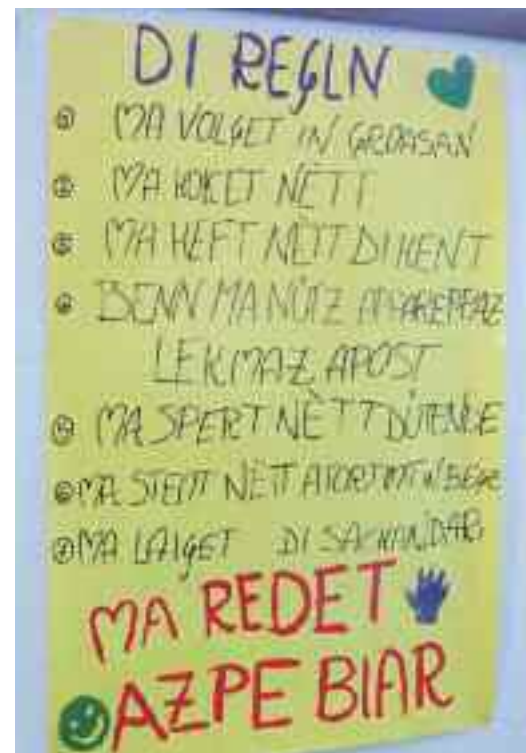 DI REGLN
① MA VOLGET IN GROASAN
② MA KOKET NETT
③ MA HEFT NÈTT DI HENT
④ BENN MA NÜTZ EPPAZ
LEKMAZ APOST
⑤ MA SPERT NÈTT
⑥ MA STEÒT NÈTT
⑦ MA LAIGET DI SACHANDAR
MA REDET
AZPE BIAR